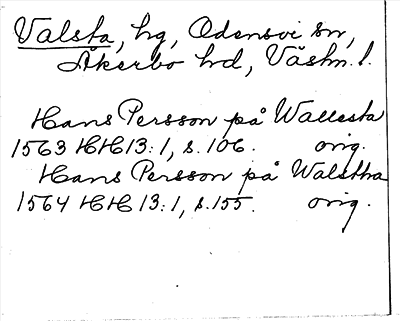 Valsta, hg, Odensvi sn,
Åkerbo hd, Västm. l.
Hans Persson på Wallesta
1563 HH 13:1, s. 106. orig.
Hans Persson på Walstha
1564 HH 13:1, s. 155. orig.